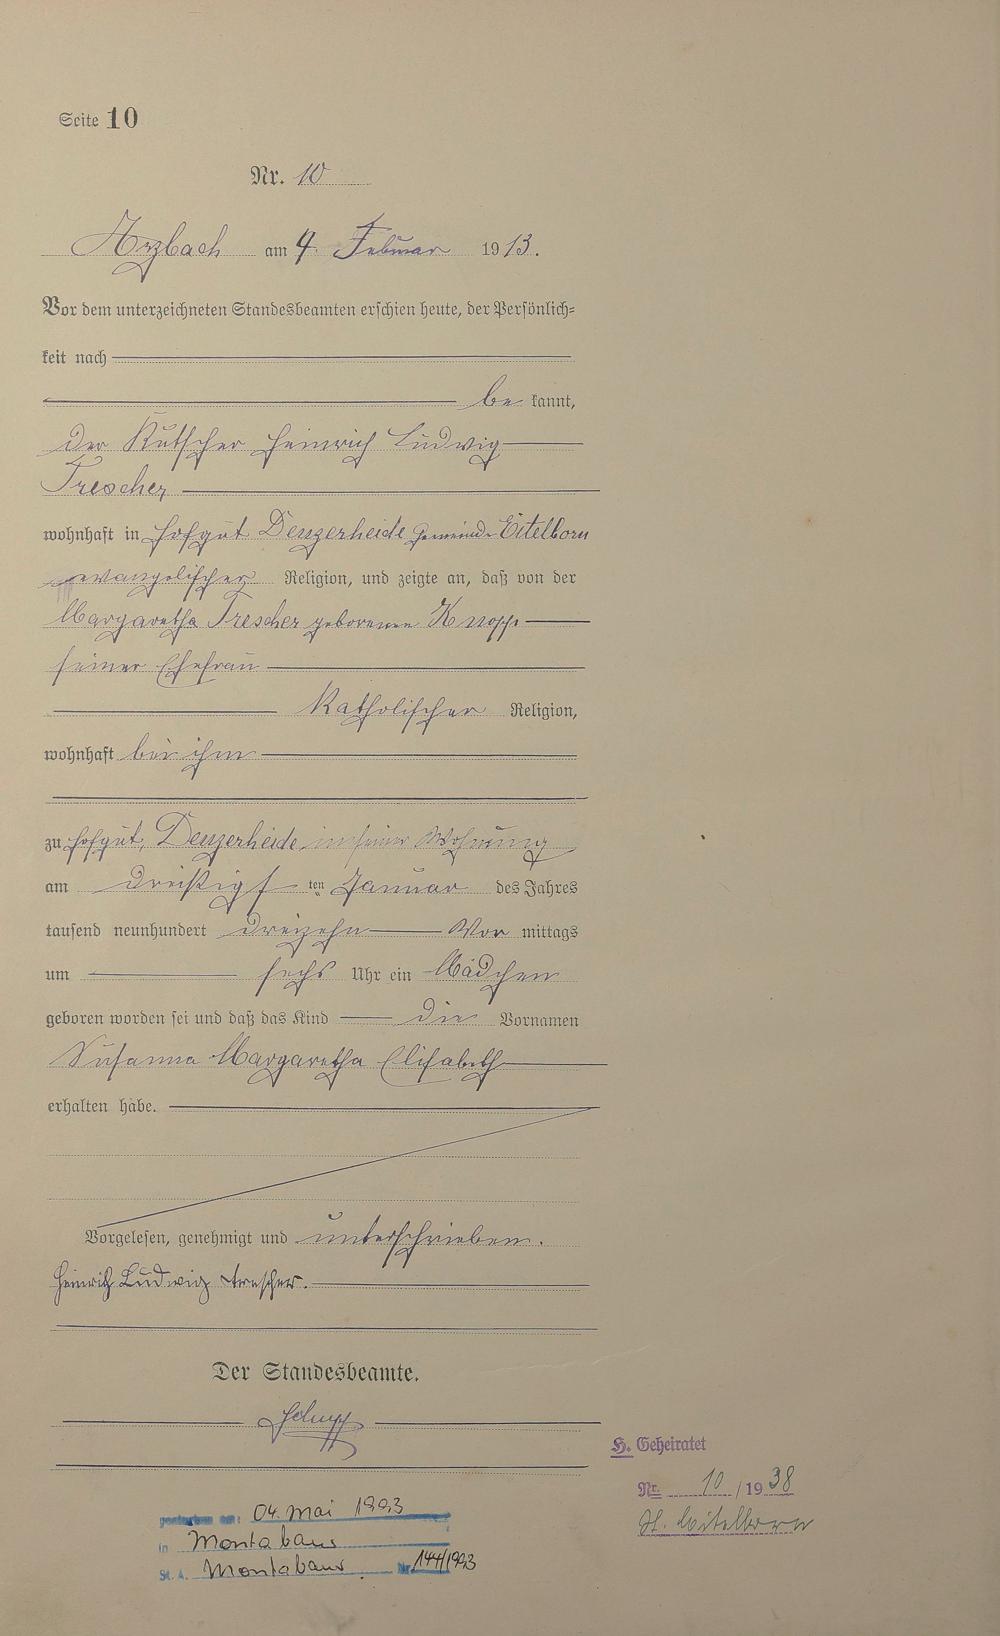 Seite 10
Nr. 10
Arzbach am 4. Februar 1913.
Vor dem unterzeichneten Standesbeamten erschien heute, der Persönlich-
keit nach
be kannt,
der Kutscher Heinrich Ludwig
Trescher
wohnhaft in Hofgut Denzerheide Gemeinde Eitelborn
evangelischer Religion, und zeigte an, daß von der
Margaretha Trescher geborenen Knopp
seiner Ehefrau
Katholischer Religion,
wohnhaft bei ihm
zu Hofgut, Denzerheide in seiner Wohnung
am dreißigsten Januar des Jahres
tausend neunhundert dreizehn Vor mittags
um sechs Uhr ein Mädchen
geboren worden sei und daß das Kind die Vornamen
Susanna Margaretha Elisabeth
erhalten habe.
Vorgelesen, genehmigt und unterschrieben.
Heinrich Ludwig Trescher.
Der Standesbeamte.
H. Geheiratet
Nr. 10 / 1938
St. Eitelborn
gestorben am: 04. Mai 1993
in Montabaur
St. A. Montabaur Nr. 144/1993